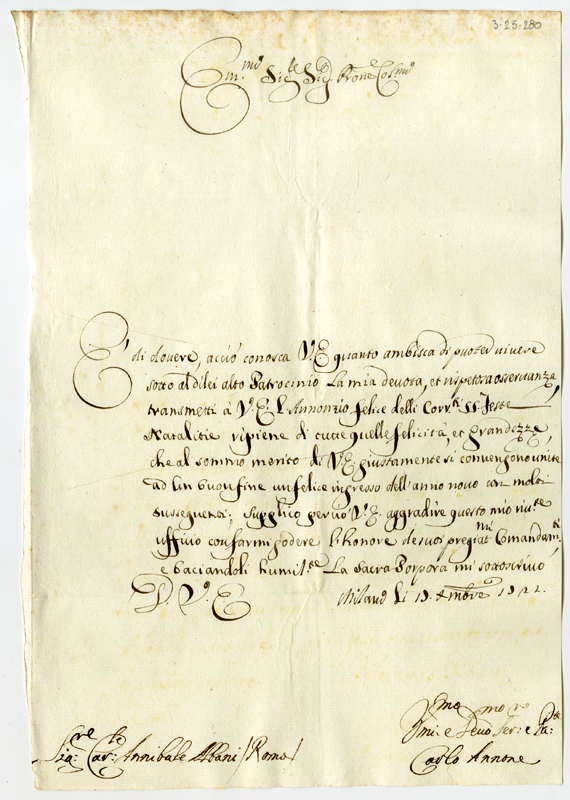 3-25-280
Em.mo Sig.re Sig.re Prone Col.mo
E' di dovere, acciò conosca V. E. quanto ambisca di puoter vivere
sotto al di lei alto Patrocinio La mia devota, et rispettosa osservanza
transmetti à V. E. L'Annonzio felice delli Corr.ti SS. feste
Natalitie ripiene di tutte quelle felicità, et grandezze
che al sommo merito di V. E. giustamente si convengono unite
ad un buon fine un felice ingresso dell'anno novo con molti
susseguenti; supplico perciò V. E. aggradire questo mio riv.te
uffitio con farmi godere l'honore de suoi pregiat.mi Comandam.ti
e baciandoli humil.te La Sacra Porpora mi sottoscrivo
D. V. E.
Milano li 19. Xmbre
Sig.re Car.le Annibale Albani / Roma /
Carlo Annone